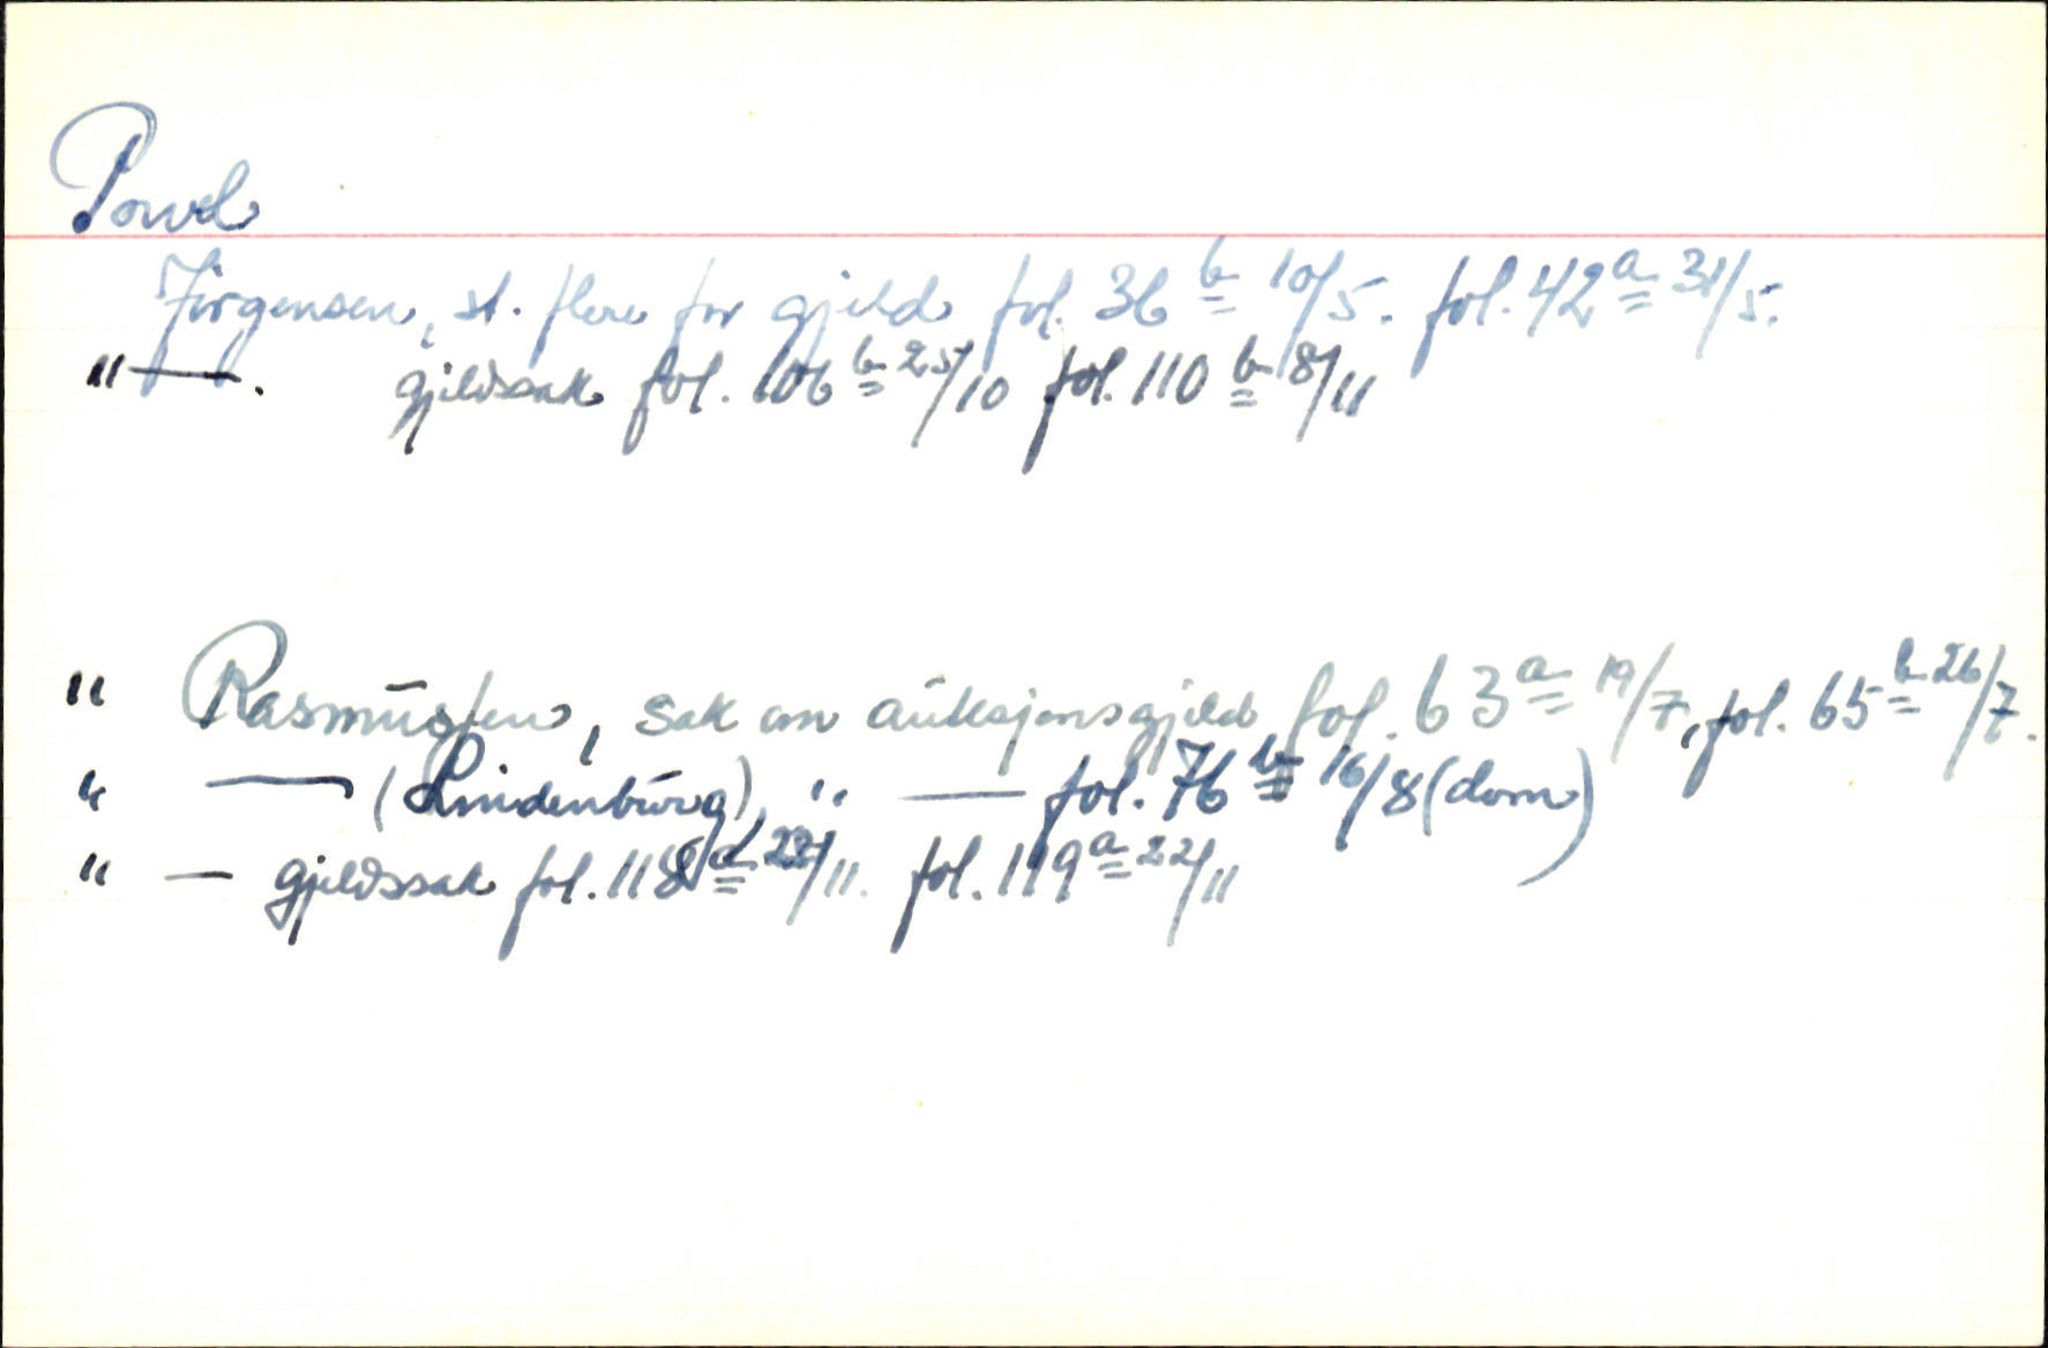 Powel
Jörgensen, st. flere for gjeld fol. 36 b 10/5. fol. 42 a 31/5.
" — . gjeldssak fol. 106 b 25/10 fol. 110 b 8/11
" Rasmusſen, sak om auksjonsgjeld fol. 63 a 19/7, fol. 65 b 26/7.
" — (Lindenburg), " — fol. 76 b 16/8 (dom)
" — gjeldssak fol. 118 a 22/11. fol. 119 a 22/11